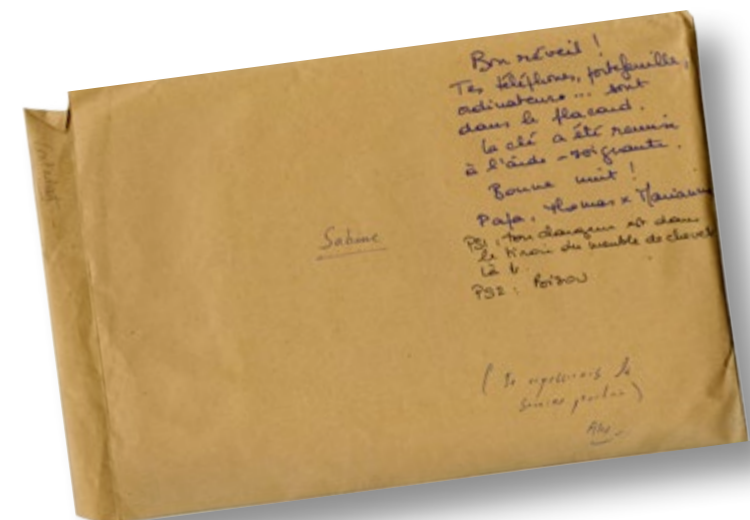 Sabine
Bon réveil !
Tes téléphones, portefeuille,
ordinateurs ... sont
dans le placard.
la clé a été remise
à l'aide-soignante.
Bonne nuit !
Papa, Thomas x Marianne
PS1 : ton chargeur est dans
le tiroir du meuble de chevet
là
PS2 :
semaine prochaine)